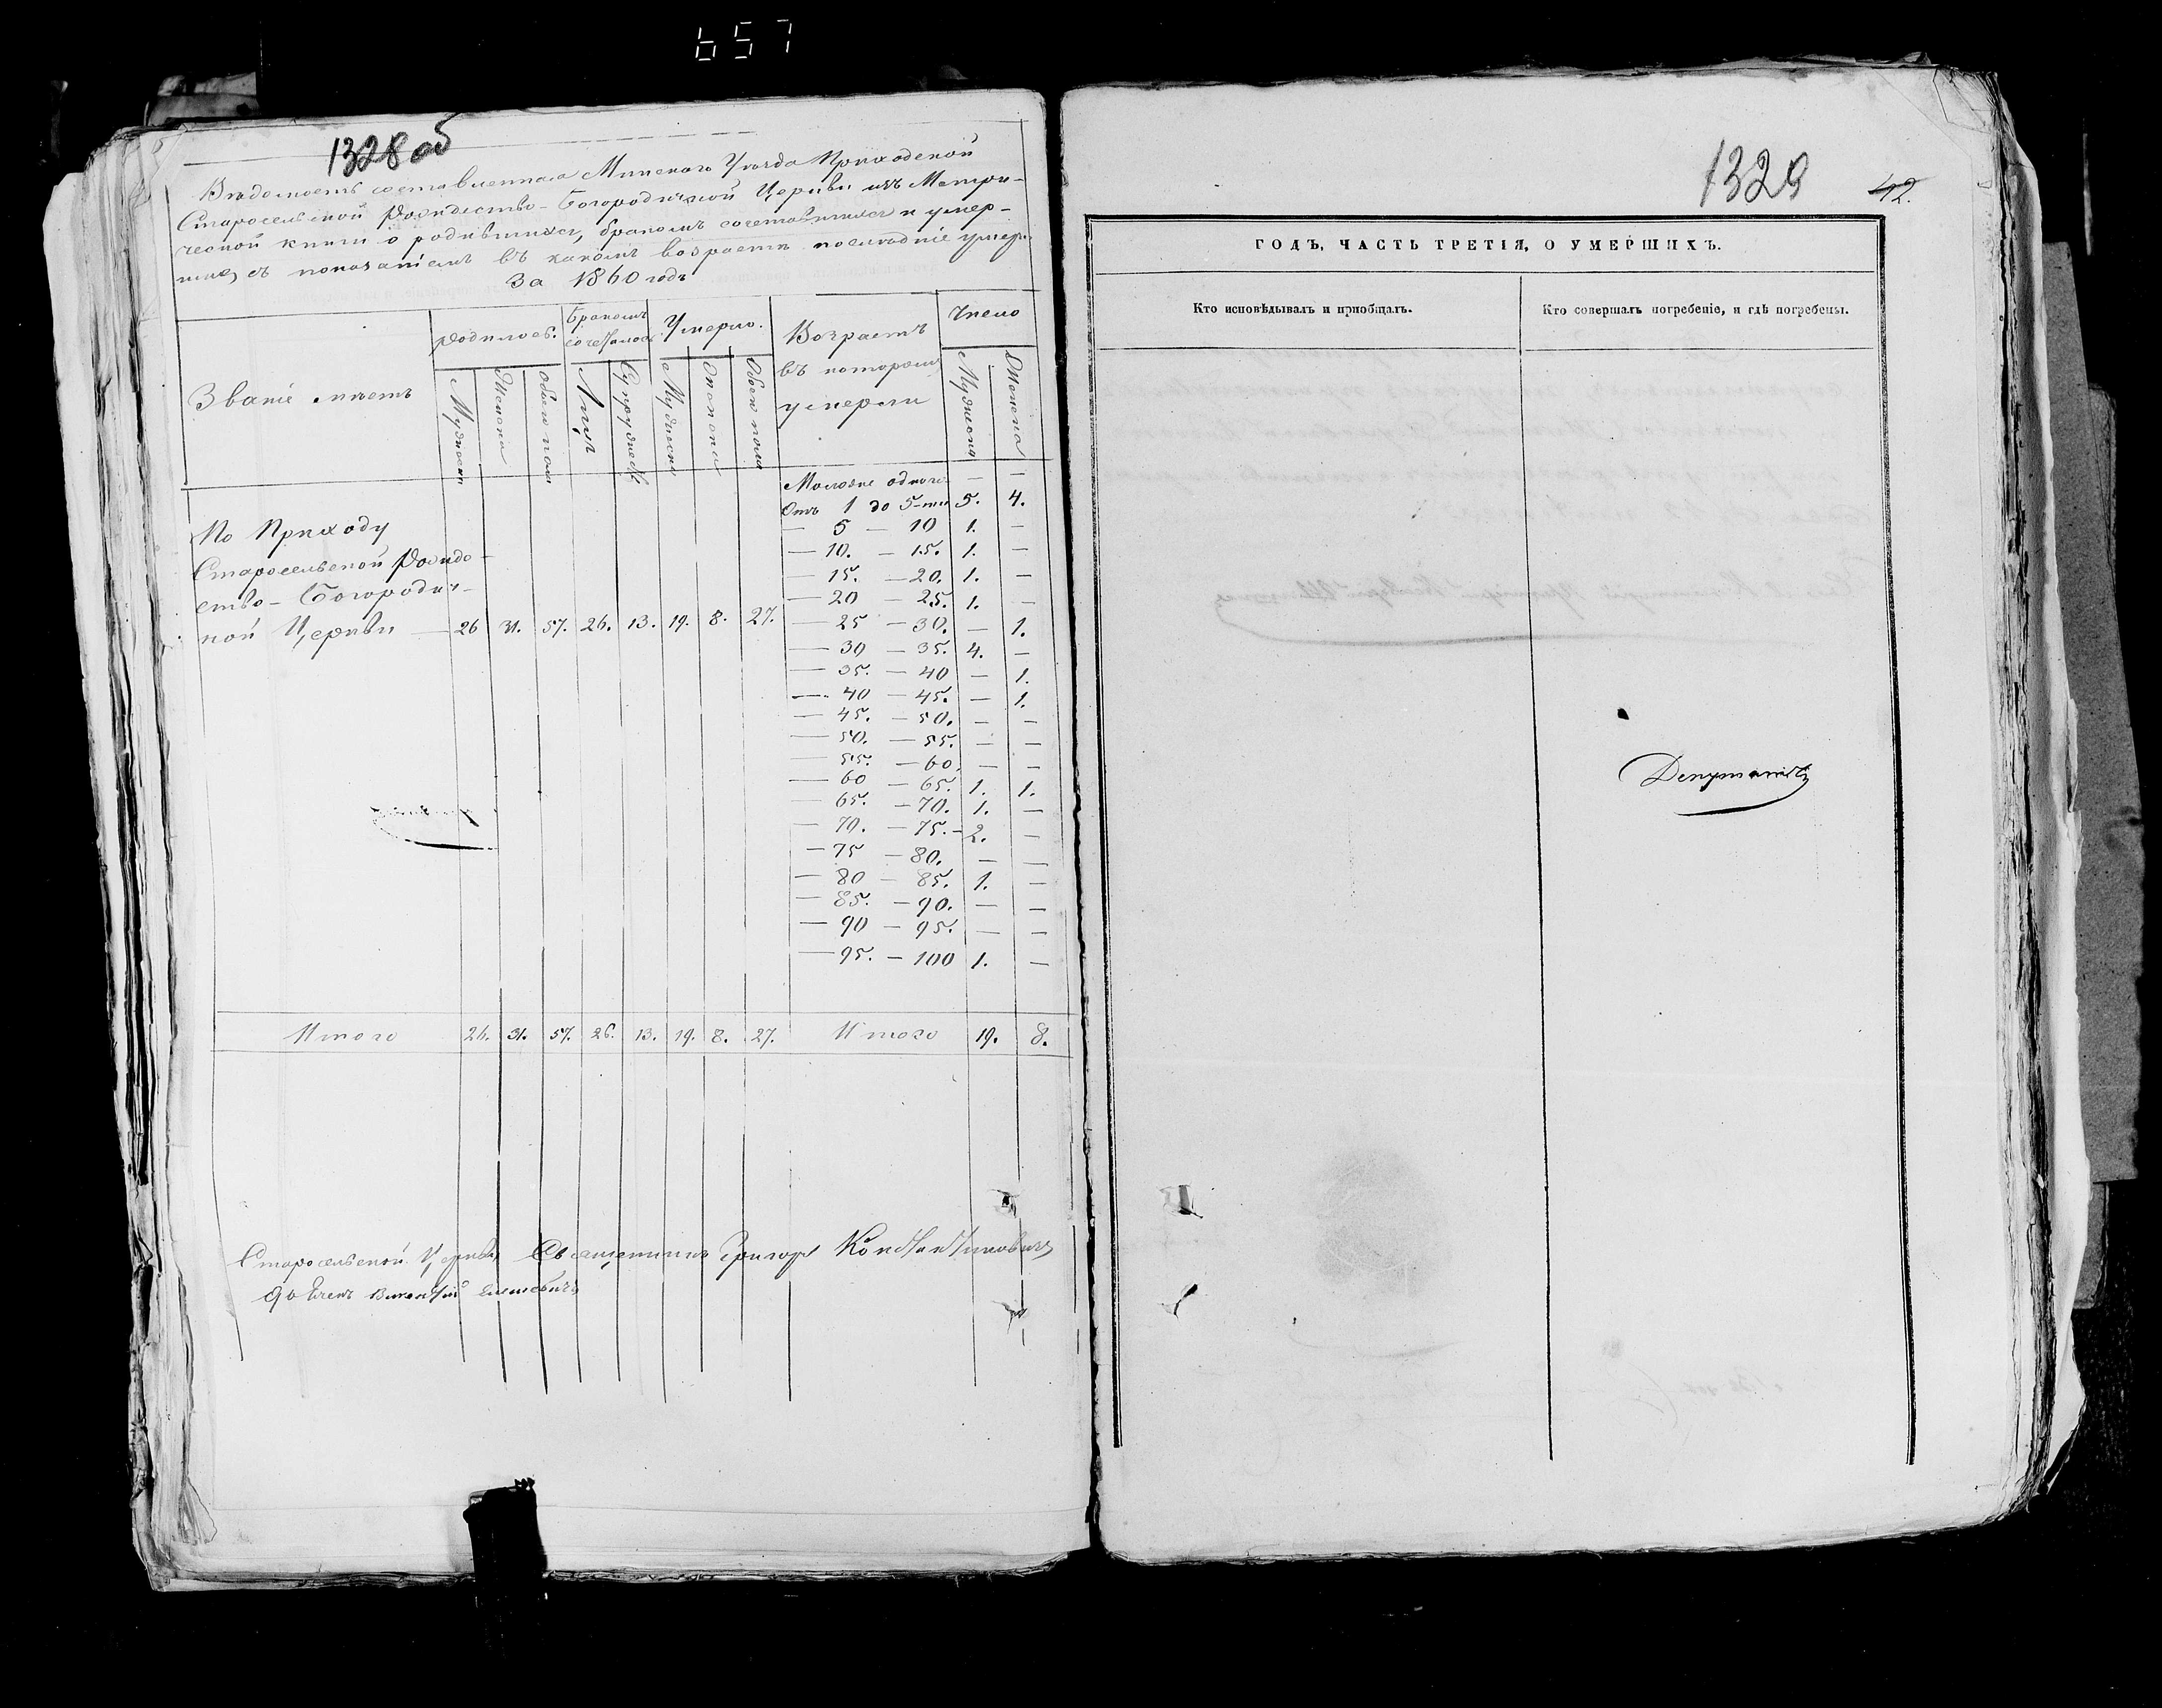 657
1328 об
Вѣдомость составленная Минскаго Уѣзда Приходской
Старосельской Рождество-Богородичной Церкви изъ Метри-
ческой книги о родившихся, бракомъ сочетавшихся и умер-
шихъ, съ показаніемъ въ какомъ возрастѣ послѣдніе умерли
За 1860 годъ
Званіе мѣстъ
Родилось.
Бракомъ сочеталось
Умерло.
Возрастъ въ которомъ умерли
Число
Мужеск
Женска
Обоего пола
Лицъ
Супружествъ
Мужеска
Женска
Обоего пола
Мужеска
Женска
Моложе одного — —
Отъ 1 до 5-ти 5. 4.
— 5 — 10 1. —
— 10. — 15. 1. —
— 15. — 20. 1. —
— 20 — 25. 1. —
— 25 — 30. — 1.
— 30 — 35. 4. —
— 35. — 40 — 1.
— 40 — 45. — 1.
— 45. — 50. — —
— 50. — 55. — —
— 55. — 60. — —
— 60 — 65. 1. 1.
— 65. — 70. 1. —
— 70. — 75. — 2. —
— 75 — 80. — —
— 80 — 85. 1. —
— 85. — 90. — —
— 90 — 95. — —
— 95. — 100 1. —
По Приходу
Старосельской Рожде-
ство-Богородич-
ной Церкви — 26 31. 57. 26. 13. 19. 8. 27.
Итого 26. 31. 57. 26. 13. 19. 8. 27. Итого 19. 8.
Старосельской Церкви Священникъ Григорій Константиновичъ
Дьячекъ Викентій
1329
42.
ГОДЪ, ЧАСТЬ ТРЕТІЯ, О УМЕРШИХЪ.
Кто исповѣдывалъ и пріобщалъ.
Кто совершалъ погребеніе, и гдѣ погребены.